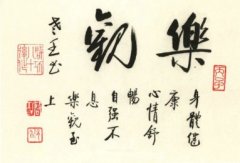 樂觀
身體健
康
心情舒
暢
自强不
息
樂觀向
上